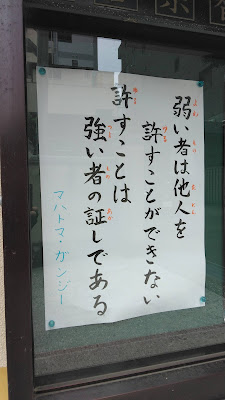 弱い者は他人を
許すことができない
許すことは
強い者の証しである
マハトマ・ガンジー